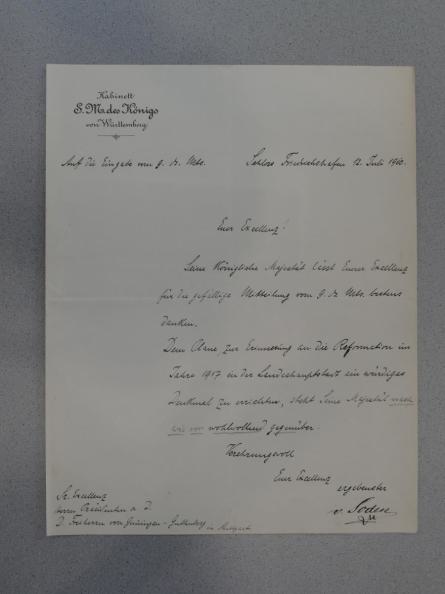 Kabinett
S. M. des Königs
von Württemberg
Auf die Eingabe vom 9. ds. Mts.
Schloss Friedrichshafen 12. Juli 1910.
Euer Excellenz!
Seine Königliche Majestät lässt Eurer Excellenz
für die gefällige Mitteilung vom 9. ds. Mts. bestens
danken.
Dem Plane, zur Erinnerung an die Reformation im
Jahre 1917 in der Landeshauptstadt ein würdiges
Denkmal zu errichten, steht Seine Majestät nach
wie vor wohlwollend gegenüber.
Verehrungsvoll
Euer Excellenz
ergebenster
v. Soden
Sr. Excellenz
Herrn Präsidenten a. D.
D. Freiherrn von Gemmingen-Guttenberg in Stuttgart